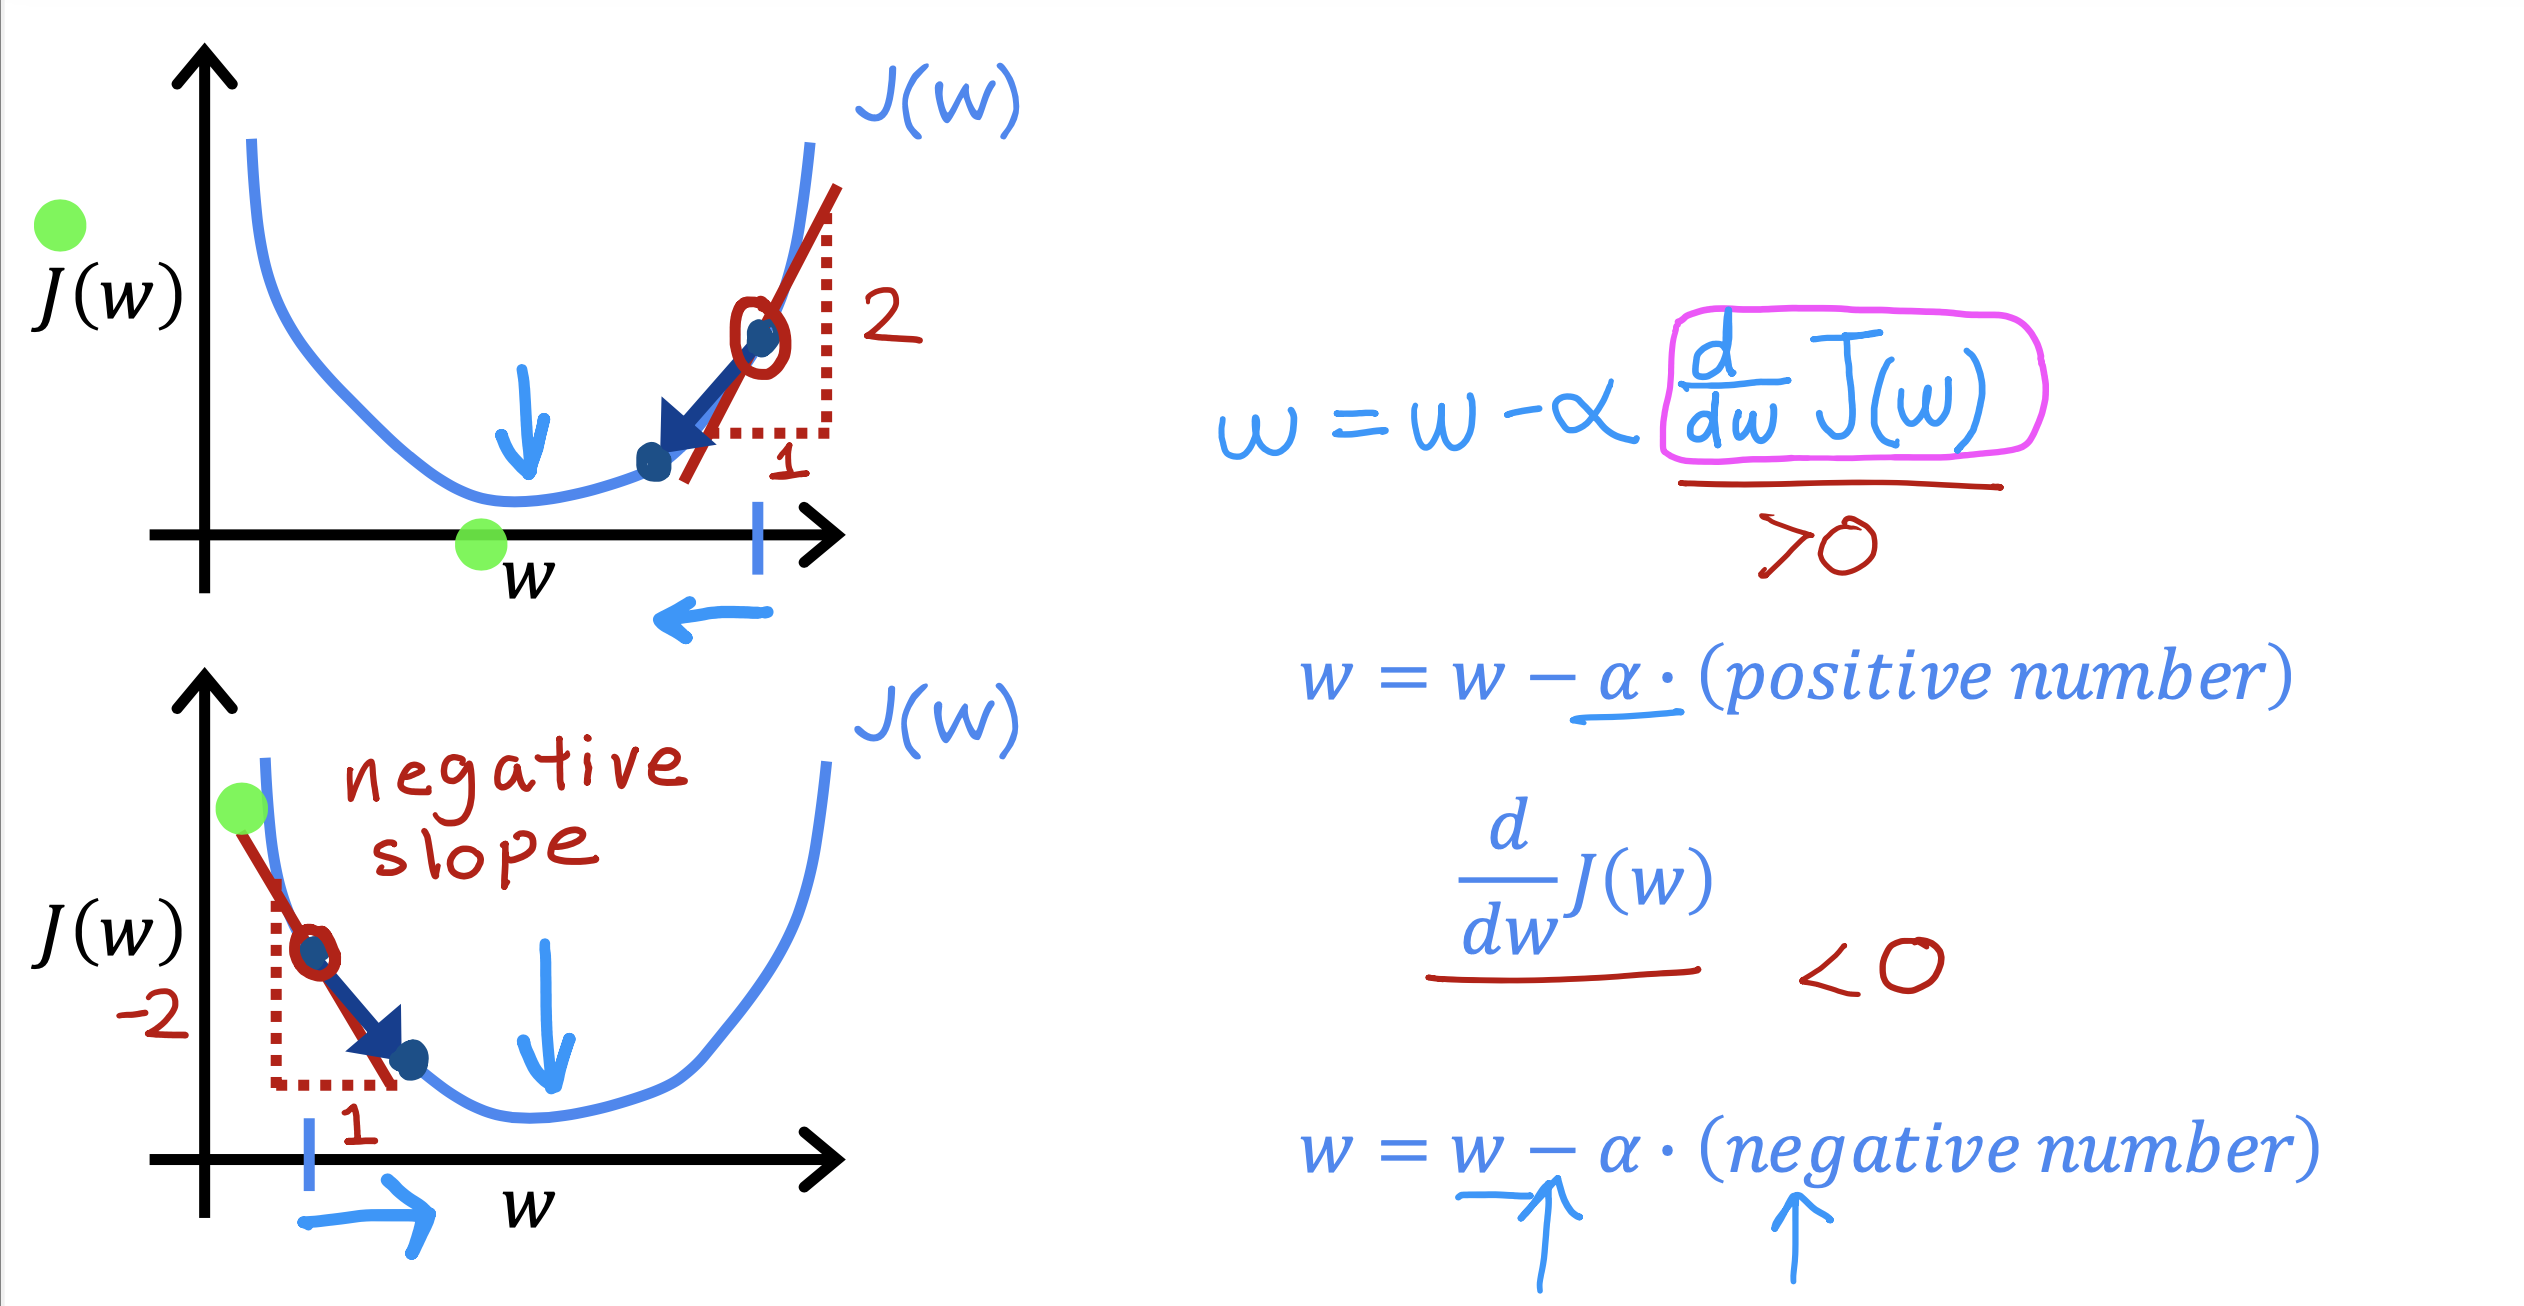 J(w)
J(w)
2
1
w
w = w - α d/dw J(w)
>0
w = w − α · (positive number)
J(w)
negative
slope
J(w)
-2
1
w
d/dw J(w) <0
w = w − α · (negative number)